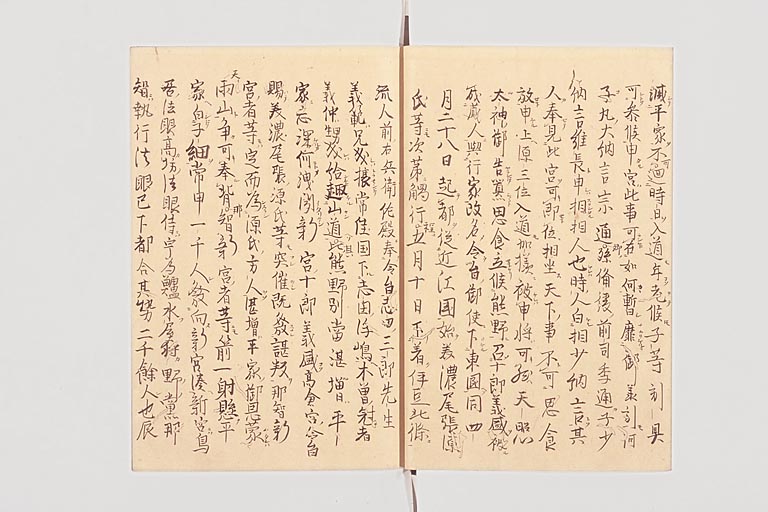 滅平家不可過時日入道年老候子等引具
可参候申宮此事可有如何暫靡御義訶
子丸大納言宗通孫備後前司季通子少
納言維長申相相人也時人白相少納言其
人奉見此宮可即位相坐天下事不可思食
放申上源三位入道加様被申将可然天照
太神御告哉思食立候熊野召十郎義盛被
成蔵人行家改名令旨御使下東國同四
月二十八日起都従近江國始美濃尾張源
氏等次第觸行程五月十日下着伊豆北條
流人前右兵衛佐殿奉令旨志田三郎先生
義範兄及接常住国下志田浮嶋木曽冠者
義仲甥及給趣山道此熊野別當湛増平
家志深何洩聞新宮十郎義盛高倉宮令旨
賜美濃尾張源氏等突催既發謀叛那智新
宮者等定而為源氏方人湛増平家御恩蒙
天雨山争可奉背那智新宮者等箭一射懸平
家奉細常申一千人發向新宮湊新宮鳥
居法眼高坊法眼侍宇鱸水屋野黨那
智執行法眼已下都合其勢二千餘人也辰